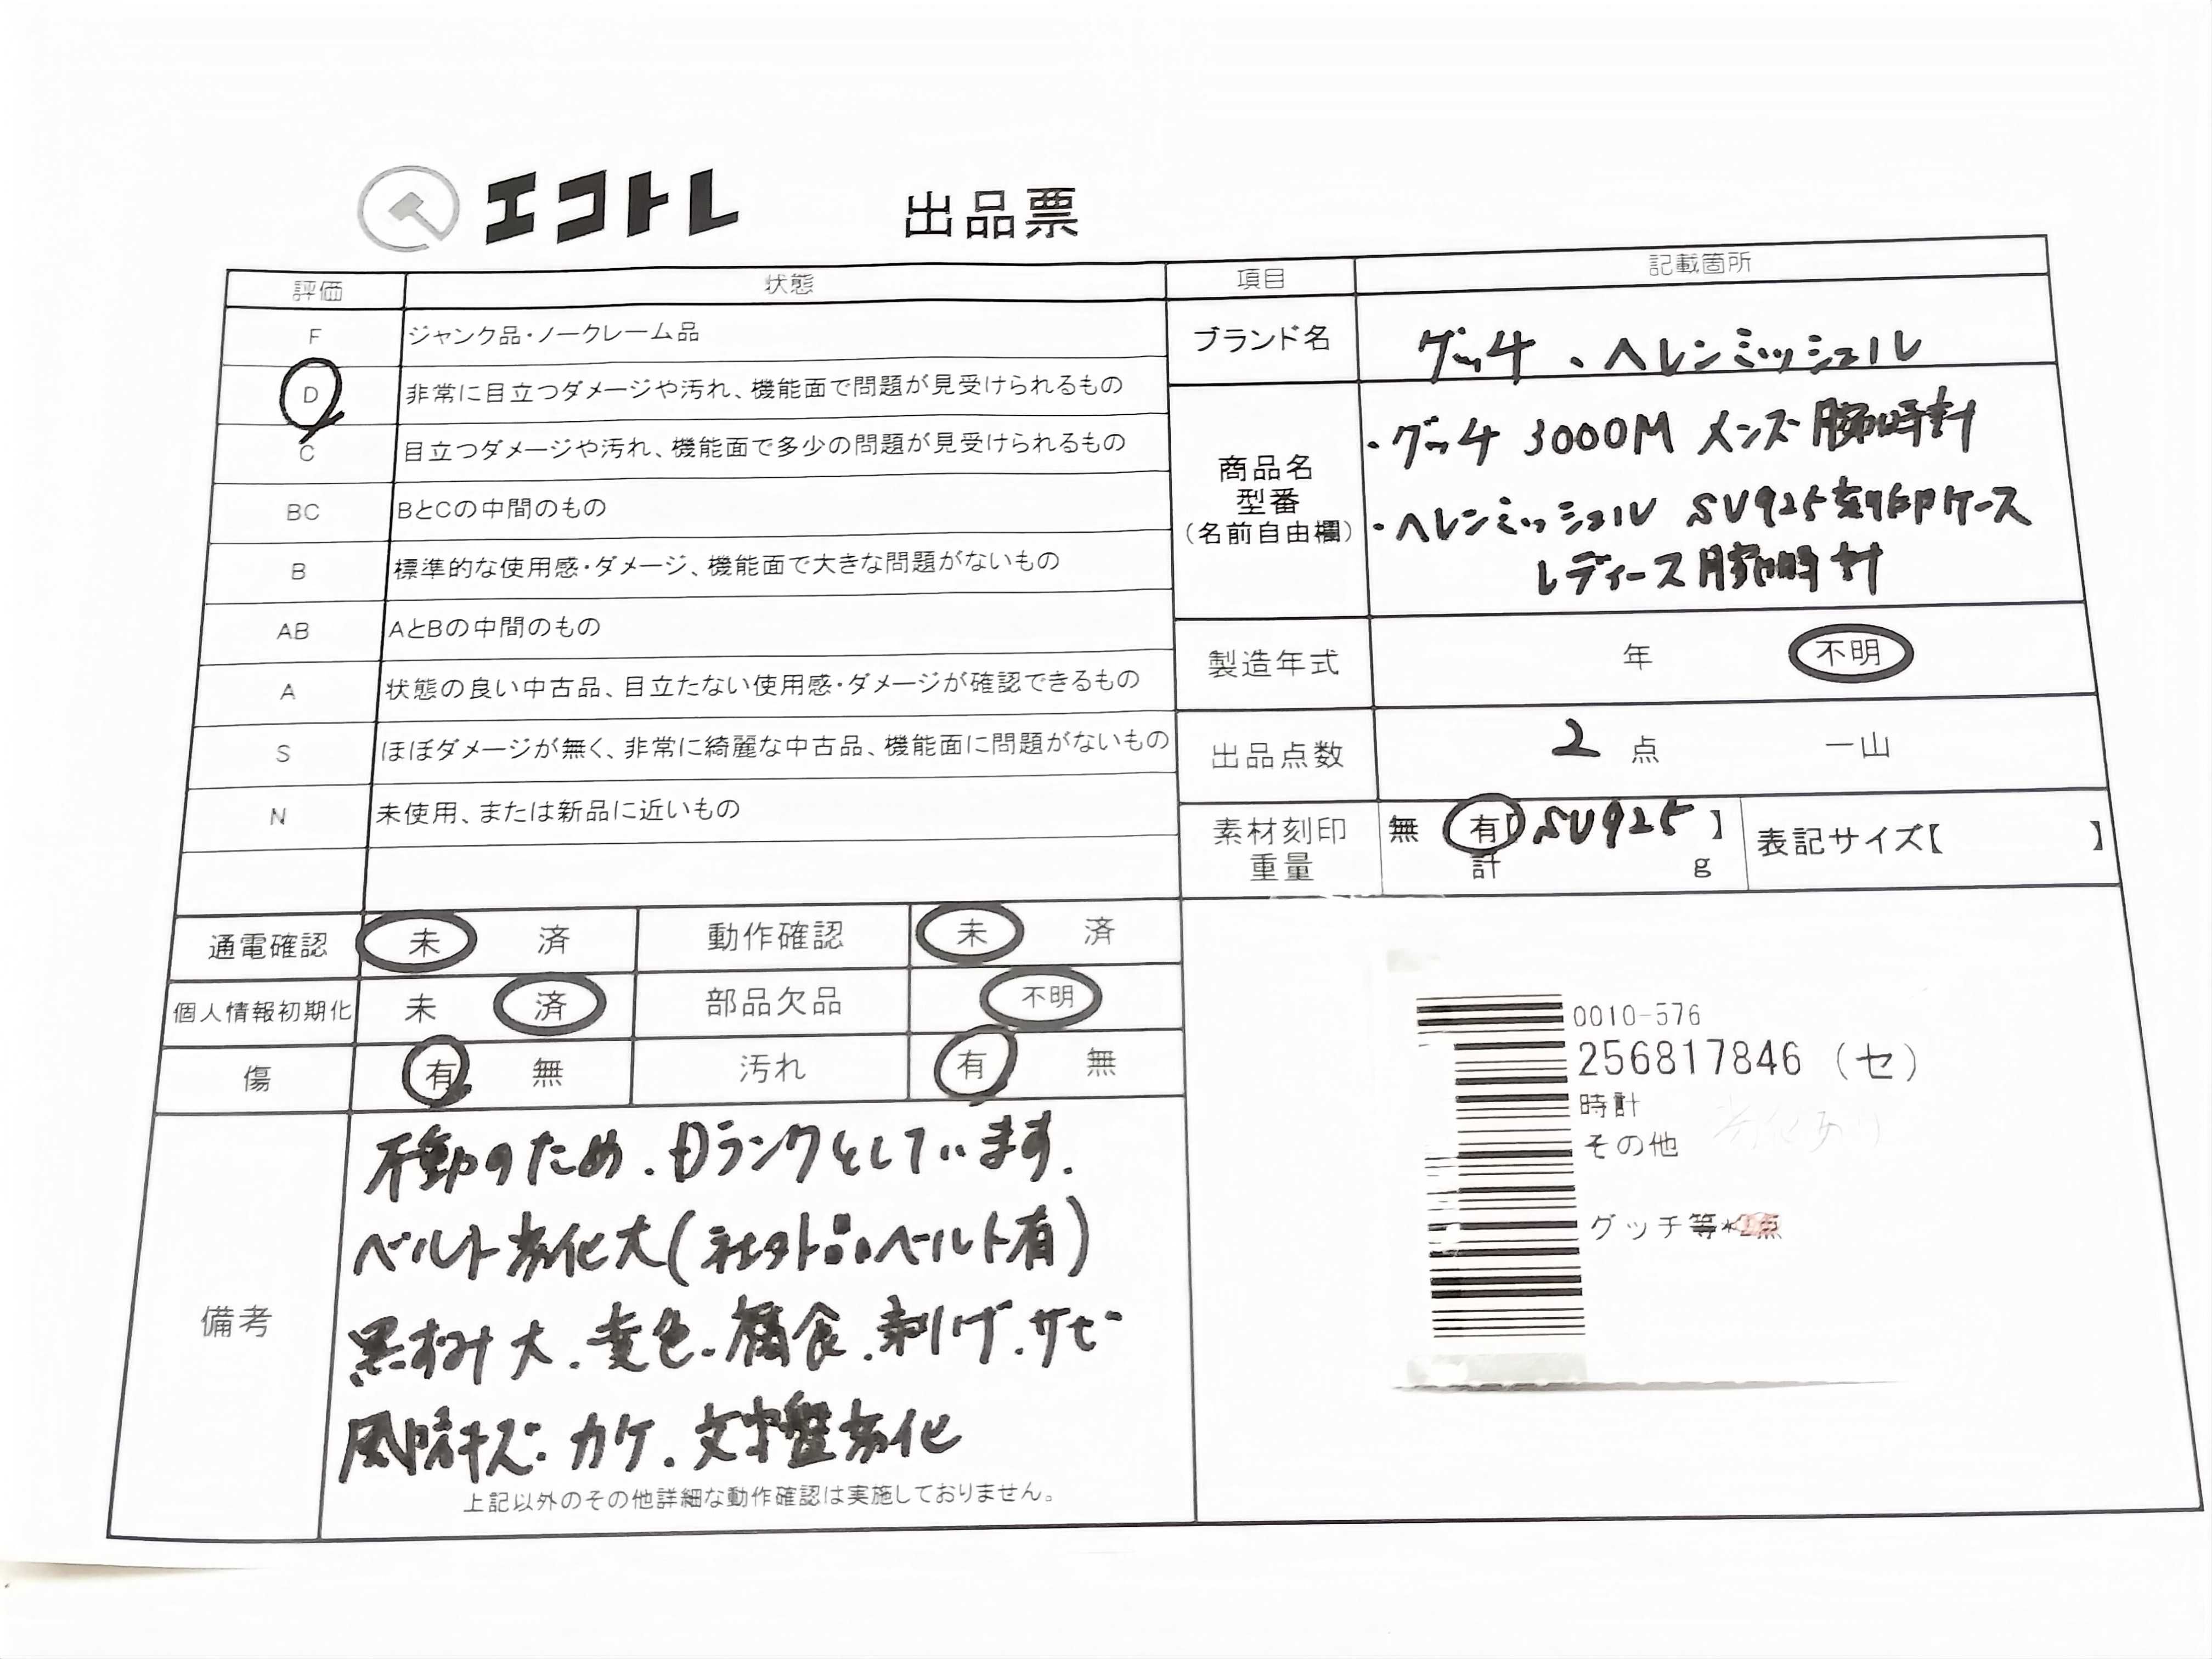 エコトレ 出品票
評価 状態 項目 記載箇所
F ジャンク品・ノークレーム品
D 非常に目立つダメージや汚れ、機能面で問題が見受けられるもの
C 目立つダメージや汚れ、機能面で多少の問題が見受けられるもの
BC BとCの中間のもの
B 標準的な使用感・ダメージ、機能面で大きな問題がないもの
AB AとBの中間のもの
A 状態の良い中古品、目立たない使用感・ダメージが確認できるもの
S ほぼダメージが無く、非常に綺麗な中古品、機能面に問題がないもの
N 未使用、または新品に近いもの
ブランド名 グッチ、ヘレンミッシェル
商品名
型番
(名前自由欄)
・グッチ 3000M メンズ腕時計
・ヘレンミッシェル SV925刻印ケース
レディース腕時計
製造年式 年 不明
出品点数 2 点 一山
素材刻印 無 有【SV925】 表記サイズ【 】
重量 計 g
通電確認 未 済 動作確認 未 済
個人情報初期化 未 済 部品欠品 不明
傷 有 無 汚れ 有 無
備考
不動のため、Dランクとしています.
ベルト劣化大(社外品ベルト有)
黒ずみ大.変色.腐食.剥げ.サビ
風防キズ.カケ.文字盤劣化
上記以外のその他詳細な動作確認は実施しておりません。
0010-576
256817846 (セ)
時計
その他
グッチ等*2点